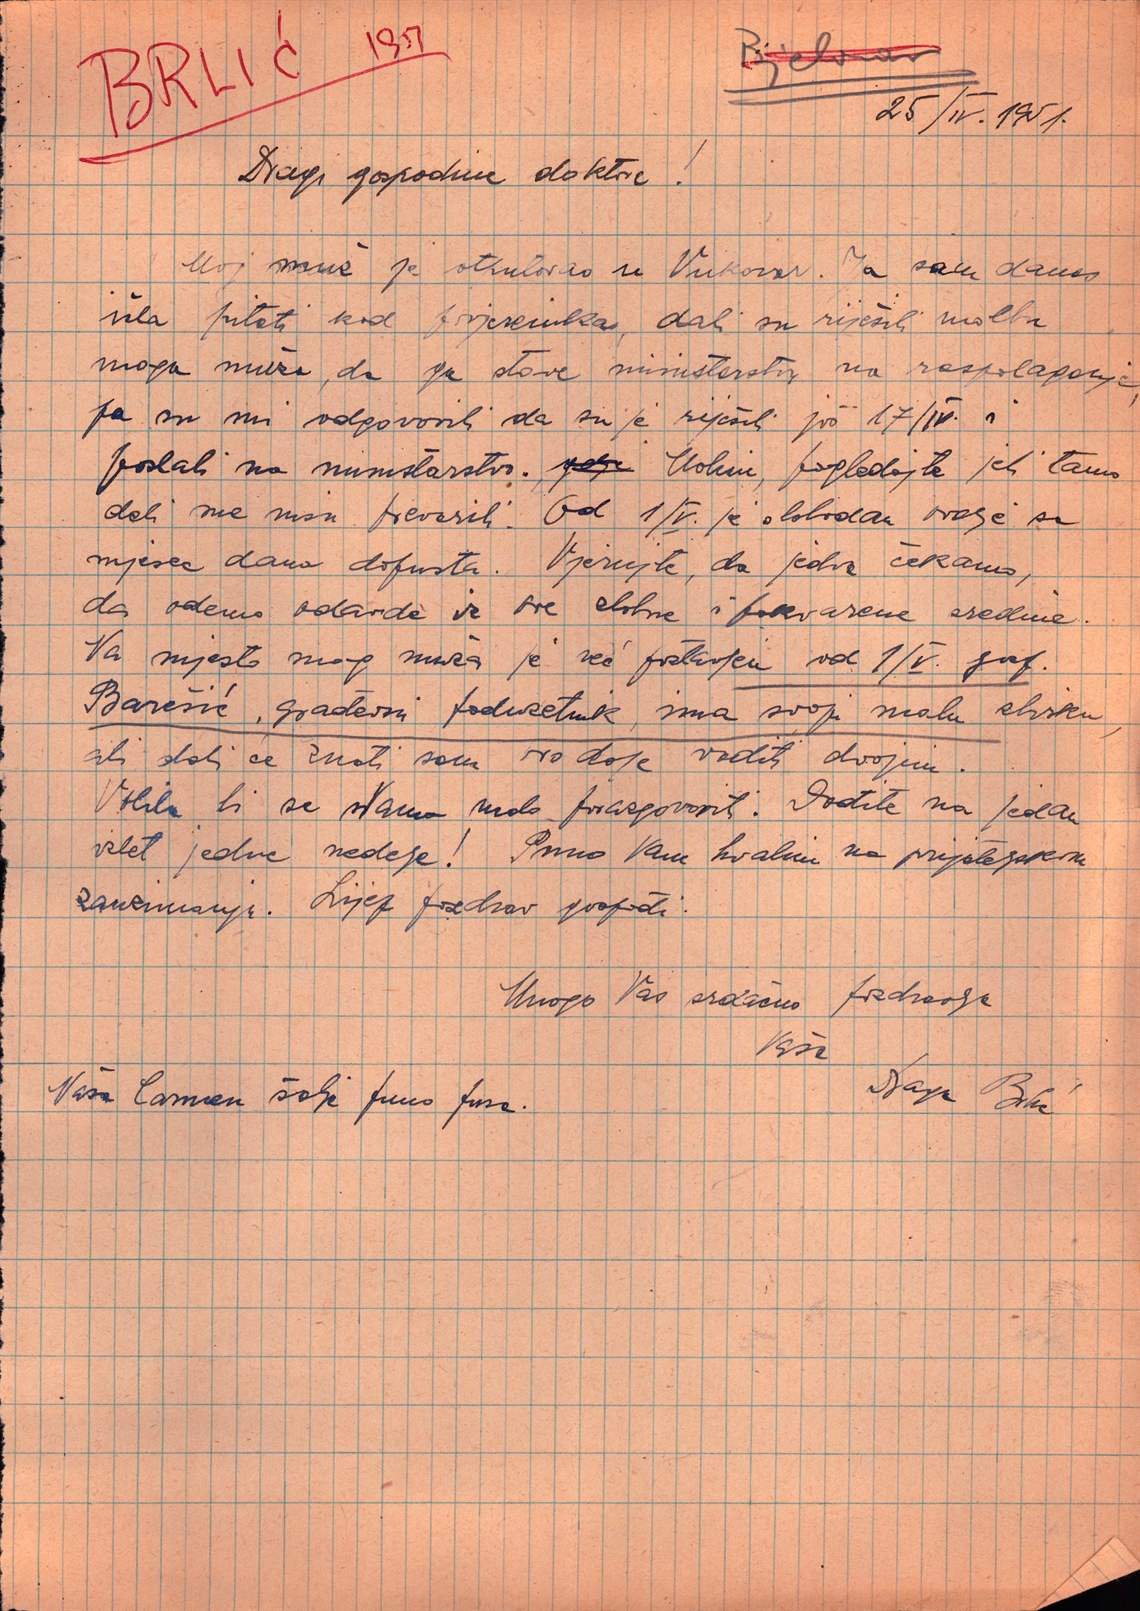 BRLIĆ 1951
Bjelovar
25/IV. 1951.
Dragi gospodine doktore!
Moj muž je otputovao u Vukovar. Ja sam danas
išla pitati kod povjereništva, dali su riješili molbu
moga muža, da ga stave ministarstvu na raspolaganje,
pa su mi odgovorili da su je riješili još 17/IV. i
poslali na ministarstvo. Molim, pogledajte jeli tamo
dali me nisu prevarili. Od 1/V. je slobodan ovdje sa
mjesec dana dopusta. Vjerujte, da jedva čekamo,
da odemo odavde iz ove zlobne i pokvarene sredine.
Na mjesto mog muža je već postavljen od 1/V. gosp.
Barešić, građevni poduzetnik, ima svoju malu zbirku,
ali dali će znati sam ovo dalje voditi dvojim.
Volila bi se s Vama malo porazgovoriti. Dođite na jedan
izlet jedne nedelje! Puno Vam hvalim na prijateljskom
zauzimanju. Lijep pozdrav gospođi.
Mnogo Vas srdačno pozdravlja
Vaša
Draga Brlić
Naša Carmen šalje puno pusa.